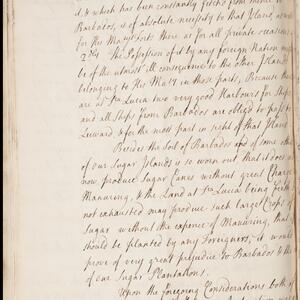 it & which has been constantly fetch'd from thence to
Barbados, is of absolute necessity to that Island, as well
for His Maj.ts Forts there as for all private occasions
2.dly The Possession of it by any foreign Nation might
be of the utmost ill consequence to the other Islands
belonging to His Maj.ty in those parts, Because there
are at S.ta Lucia two very good Harbours for Ships
and all Ships from Barbados are obliged to pass to
Leeward, & for the most part in sight of that Island
Besides the Soil of Barbados and of some other
of our Sugar Islands is so worn out that it does not
now produce Sugar Canes without great Charge
Manuring, & the Land at S.ta Lucia being fresh &
not exhausted may produce such large Crops of
Sugar without the expence of Manuring, that if
should be planted by any Foreigners, it would
prove of very great prejudice to Barbados & the
of our Sugar Plantations.
Upon the foregoing Considerations both of